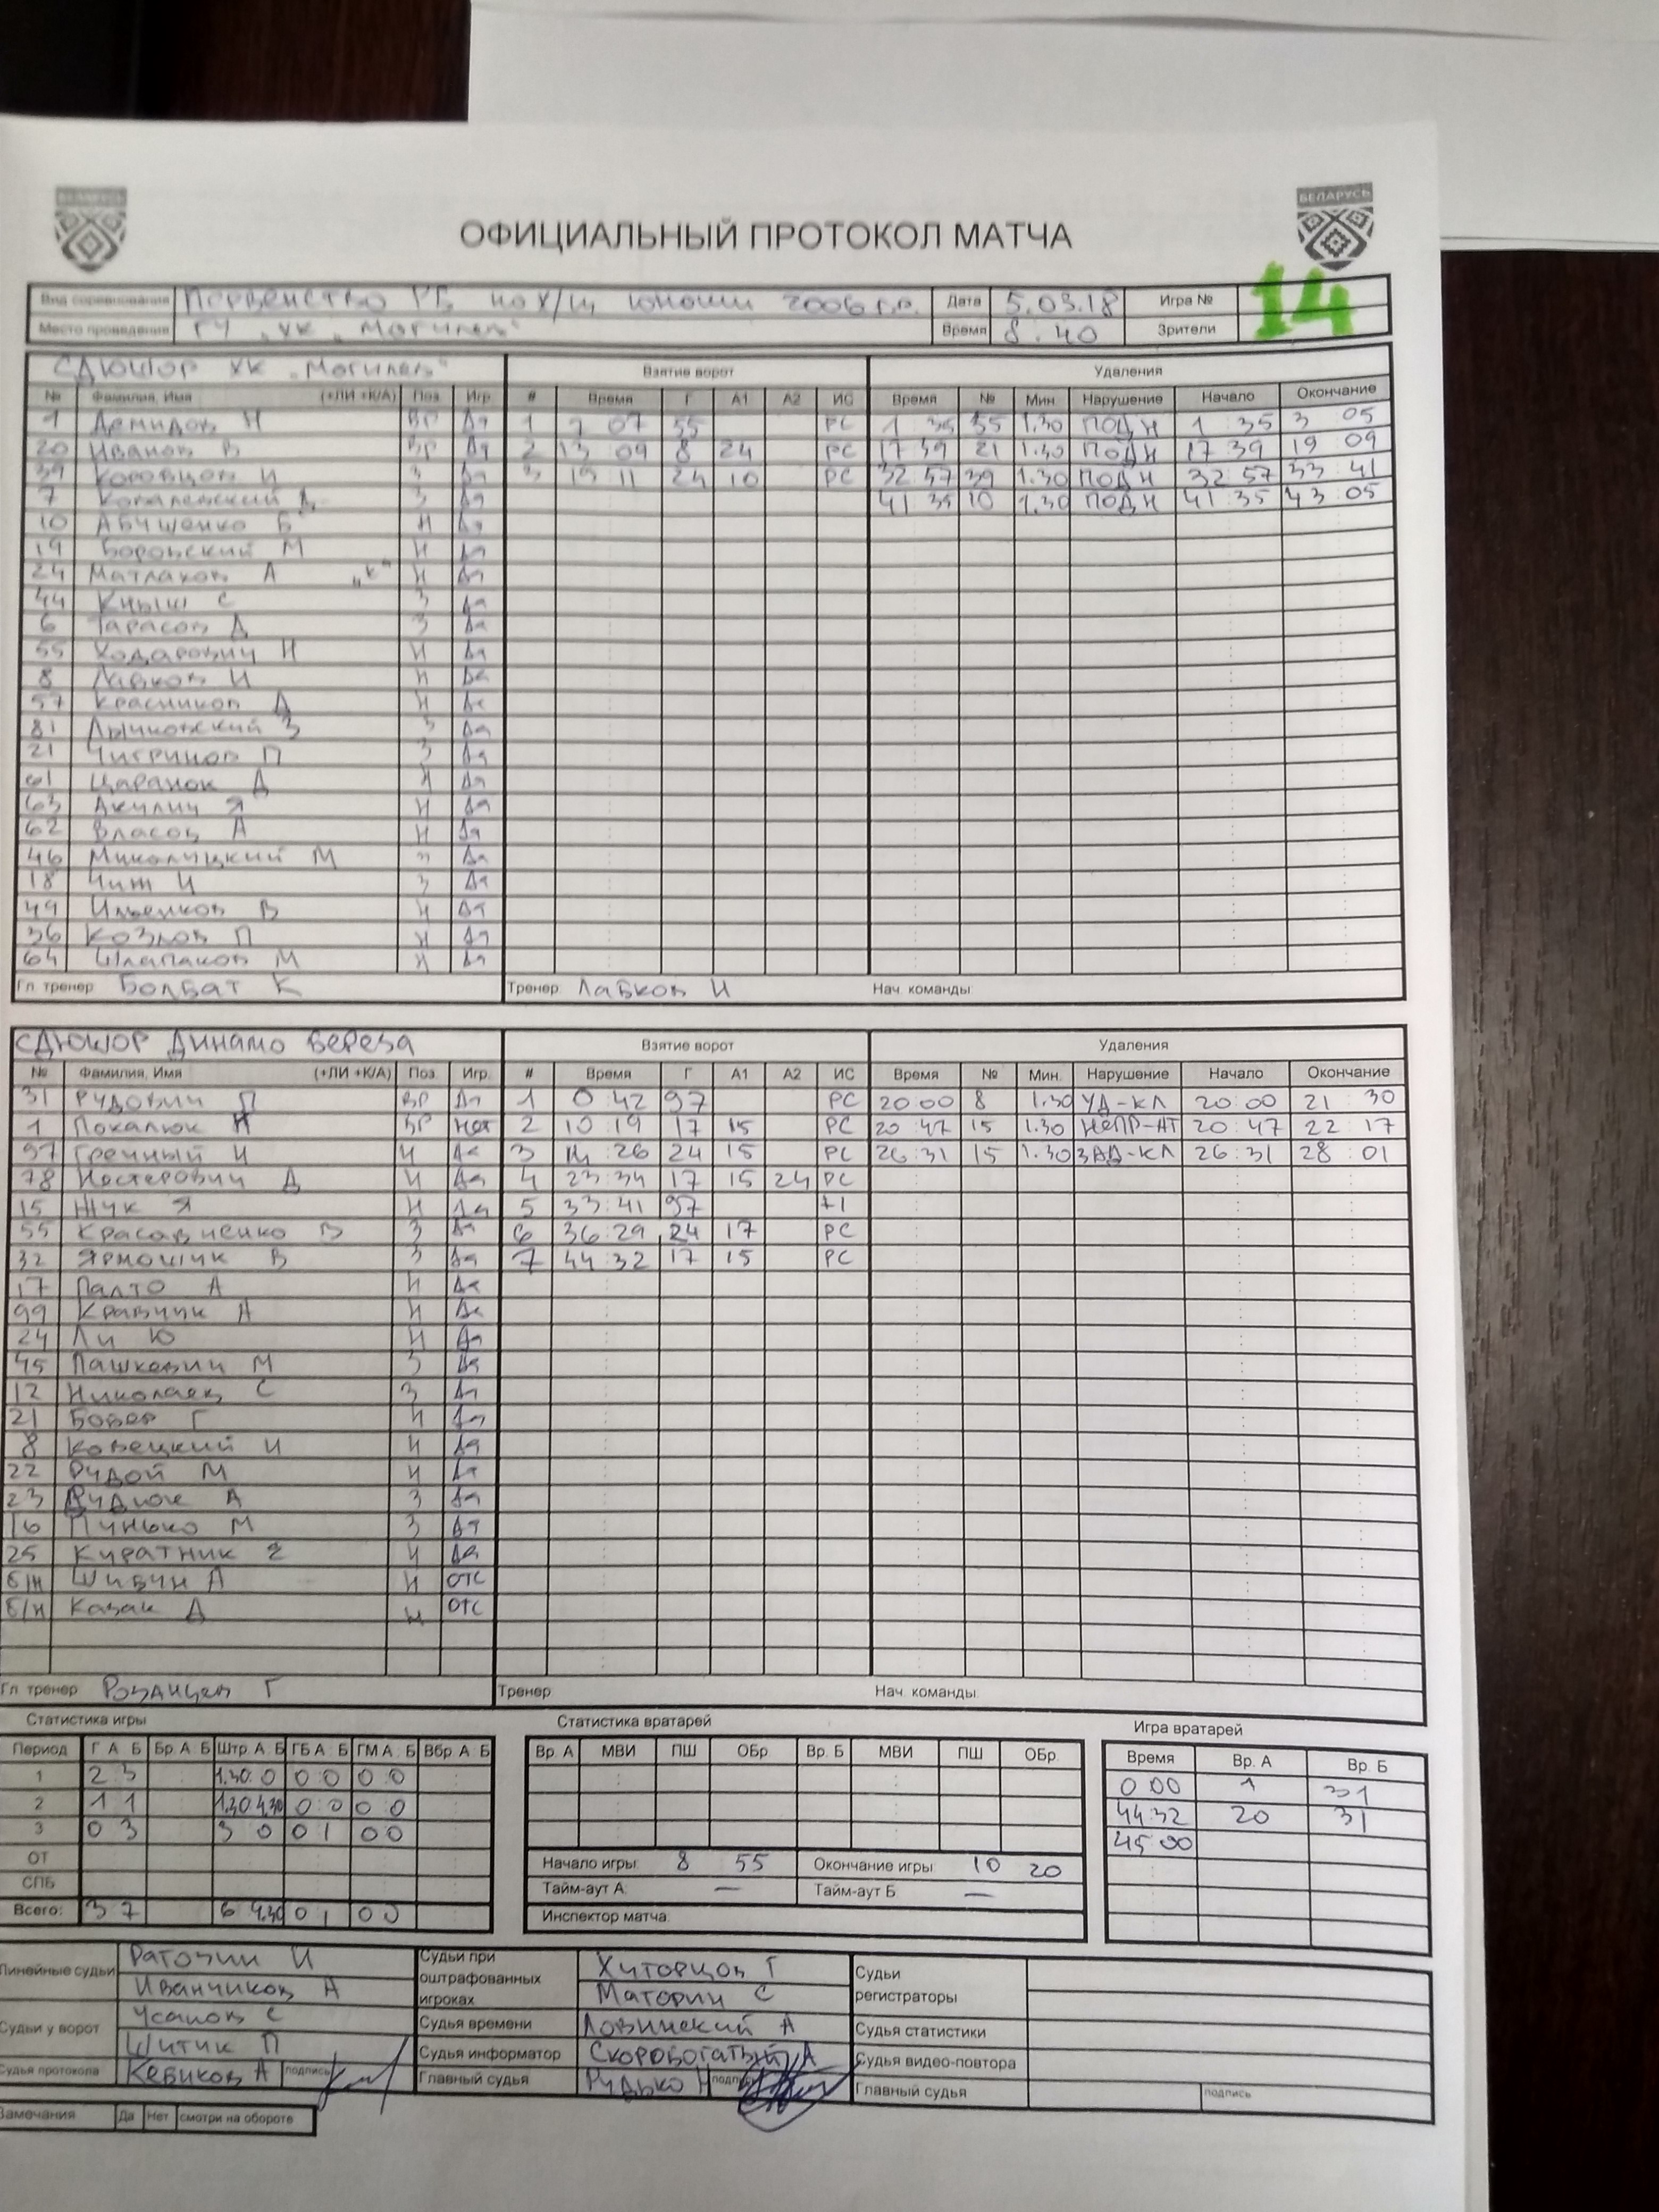 БЕЛАРУСЬ БЕЛАРУСЬ
ОФИЦИАЛЬНЫЙ ПРОТОКОЛ МАТЧА
Вид соревнования Первенство РБ по х/ш юноши 2006 г.р. Дата 5.03.18 Игра № 14
Место проведения ГУ "ХК "Могилев" Время 8.40 Зрители
СДЮШОР ХК "Могилев" Взятие ворот Удаления
№ Фамилия, Имя (+ЛИ +К/А) Поз. Игр. # Время Г А1 А2 ИС Время № Мин. Нарушение Начало Окончание
1 Демидов Н ВР Да 1 7 07 55 РС 1 35 55 1.30 ПОДН 1 35 3 05
20 Иванов В ВР Да 2 13 09 8 24 РС 17 39 21 1.30 ПОДН 17 39 19 09
39 Коровцов И З Да 3 19 11 24 10 РС 32 57 39 1.30 ПОДН 32 57 33 41
7 Ковалевский Д З Да 41 35 10 1.30 ПОДН 41 35 43 05
10 Абушенко Б Н Да
19 Боровский М Н Да
24 Матлахов А "К" Н Да
44 Кныш С З Да
6 Тарасов Д З Да
55 Ходарович Н Н Да
8 Лабков И Н Да
57 Красников Д Н Да
81 Лычковский З З Да
21 Чигринов П З Да
61 Царанок Д Н Да
63 Акулич Я Н Да
62 Власов А Н Да
46 Миколуцкий М Да
18 Чиж И З Да
49 Ильенков В Н Да
36 Козлов П Н Да
64 Шлапаков М Н Да
Гл. тренер Болбат К Тренер Лабков И Нач. команды
СДЮШОР Динамо Береза Взятие ворот Удаления
№ Фамилия, Имя (+ЛИ +К/А) Поз. Игр. # Время Г А1 А2 ИС Время № Мин. Нарушение Начало Окончание
31 Рудович П ВР Да 1 0:42 97 РС 20 00 8 1.30 УД-КЛ 20:00 21 30
1 Покалюк ВР Нет 2 10 19 17 15 РС 20 47 15 1.30 НЕПР-АТ 20:47 22 17
97 Гречный И Н Да 3 26 24 15 РС 26:31 15 1.30 ЗАД-КЛ 26:31 28 01
78 Нестерович Д Н Да 4 23:34 17 15 24 РС
15 Жук Я Н Да 5 33:41 97 +1
55 Красавченко В З Да 6 36:29 24 17 РС
32 Ярмошук В З Да 7 44 32 17 15 РС
17 Палто А Н Да
99 Кравчук А Н Да
24 Ли Ю Н Да
45 Пашкевич М З Да
12 Николаев С З Да
21 Бобер Г Н Да
8 Ковецкий И Н Да
22 Рудой М Н Да
23 А З Да
16 Пунько М З Да
25 Куратник Н Да
Б/Н Шибун А Н ОТС
Б/Н Казак Д Н ОТС
Гл. тренер Тренер Нач. команды
Статистика игры Статистика вратарей Игра вратарей
Период Г А Б Бр А Б Штр А Б ГБ А Б ГМ А Б Вбр А Б Вр. А МВИ ПШ ОБр Вр. Б МВИ ПШ ОБр Время Вр. А Вр. Б
1 2 3 1.30 0 0 0 0 0 0 00 1 31
2 1 1 1.30 4.30 0 0 0 0 44:32 20 31
3 0 3 3 0 0 1 0 0 45 00
ОТ Начало игры 8 55 Окончание игры 10 20
СПБ Тайм-аут А — Тайм-аут Б —
Всего: 3 7 6 4.30 0 1 0 0 Инспектор матча
Линейные судьи Рагозин И Судьи при оштрафованных игроках Хиторцов Г Судьи регистраторы
Иванчиков А Маторин С
Судьи у ворот Усанов С Судья времени Ловинский А Судья статистики
Шитик П Судья информатор Скоробогатый А Судья видео-повтора
Судья протокола Кебиков А подпись Главный судья Рудько Н подпись Главный судья подпись
Замечания Да Нет смотри на обороте